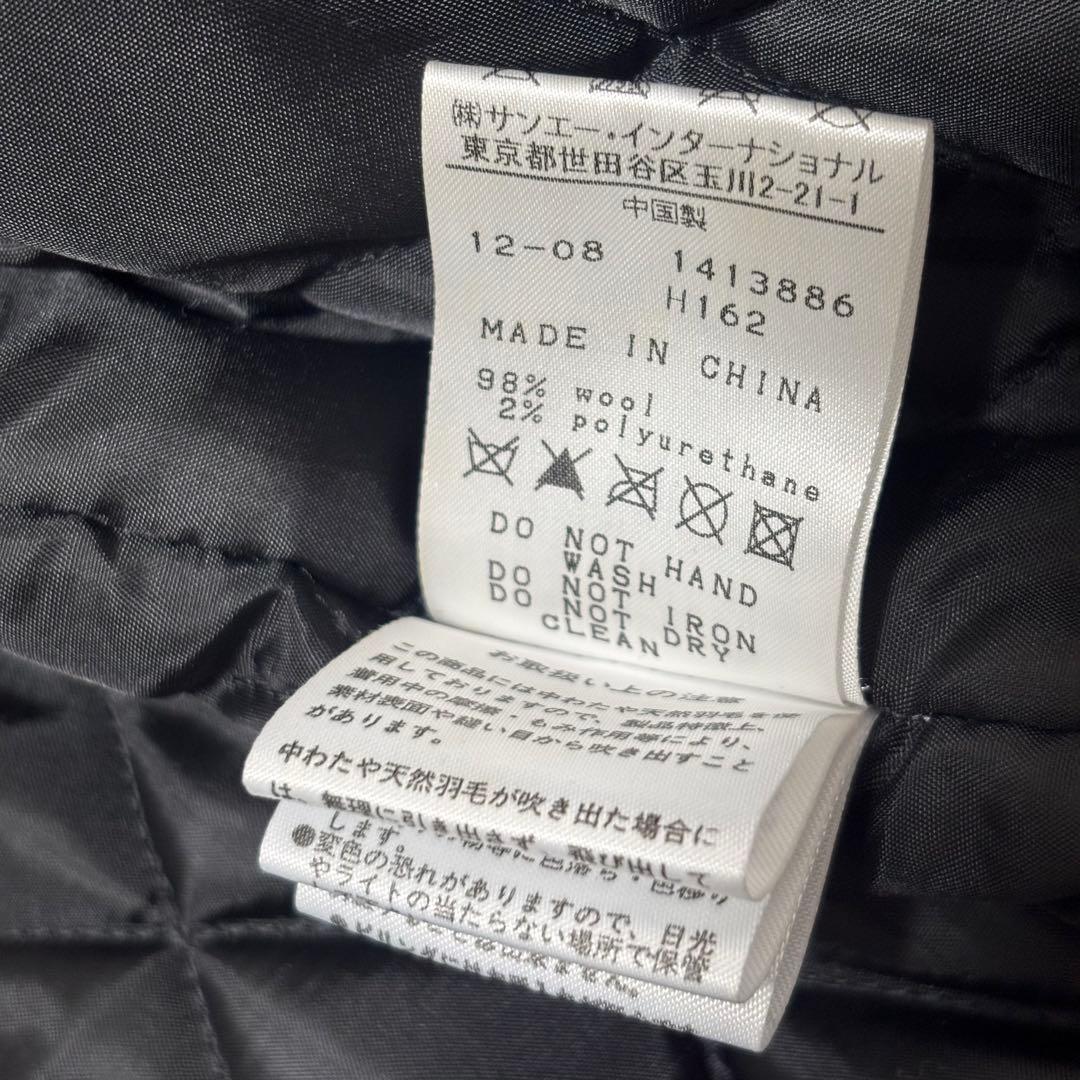 ㈱サンエー・インターナショナル
東京都世田谷区玉川2-21-1
中国製
12-08 1413886
H162
MADE IN CHINA
98% wool
2% polyurethane
DO NOT HAND
WASH
DO NOT IRON
DO NOT DRY
CLEAN
お取扱い上の注意
この商品には中わたや天然羽毛を使
用しておりますので、製品特徴上、
着用中の摩擦・もみ作用等により、
素材表面や縫い目から吹き出すこと
があります。
中わたや天然羽毛が吹き出た場合に
は、無理に引き出さず、飛び出して
します。
●変色の恐れがありますので、日光
やライトの当たらない場所で保管